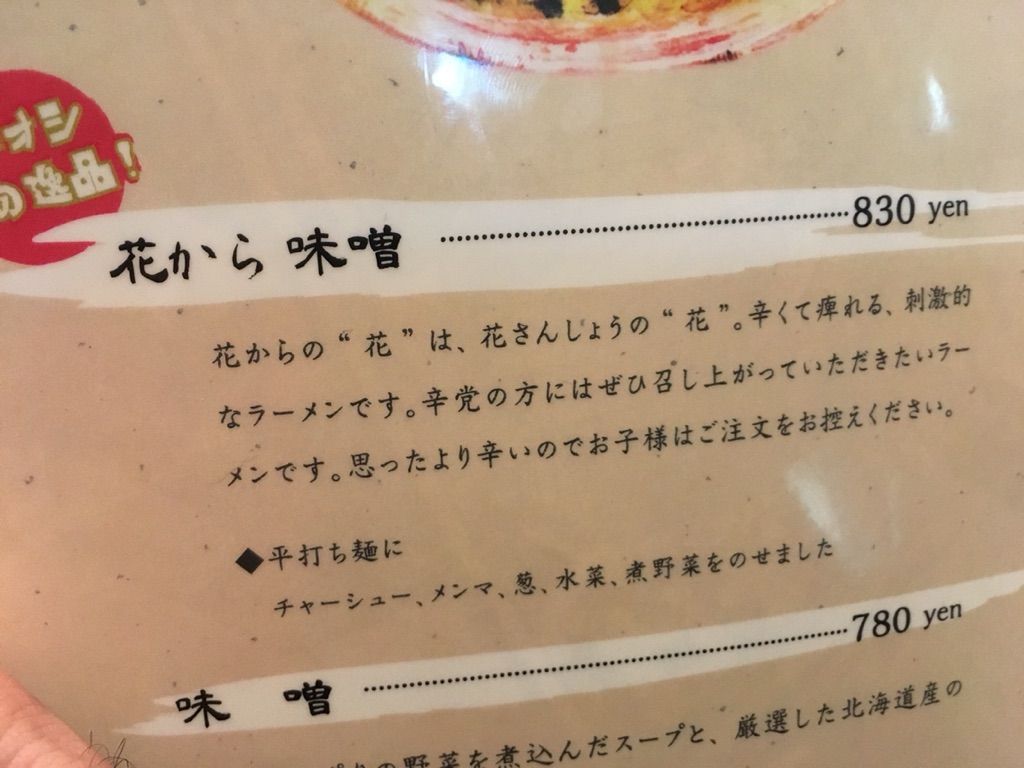 オシ
の逸品!
花から 味噌 830 yen
花からの“花”は、花さんしょうの“花”。辛くて痺れる、刺激的
なラーメンです。辛党の方にはぜひ召し上がっていただきたいラー
メンです。思ったより辛いのでお子様はご注文をお控えください。
◆平打ち麺に
チャーシュー、メンマ、葱、水菜、煮野菜をのせました
味 噌 780 yen
の野菜を煮込んだスープと、厳選した北海道産の